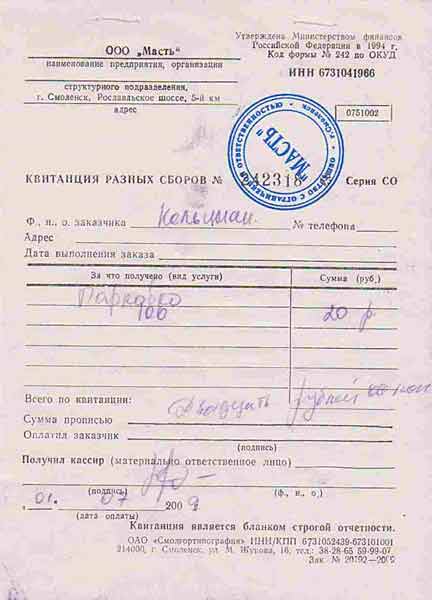 Утверждена Министерством финансов
Российской Федерации в 1994 г.
Код формы № 242 по ОКУД
ООО „Масть"
наименование предприятия, организации
ИНН 6731041966
структурного подразделения,
г. Смоленск, Рославльское шоссе, 5-й км
адрес
0751002
ОБЩЕСТВО С ОГРАНИЧЕННОЙ ОТВЕТСТВЕННОСТЬЮ
г. Смоленск
"МАСТЬ"
КВИТАНЦИЯ РАЗНЫХ СБОРОВ № 42318 Серия СО
Ф., и., о. заказчика № телефона
Адрес
Дата выполнения заказа
За что получено (вид услуги) Сумма (руб.)
Парковка 20 р
106
Всего по квитанции:
Сумма прописью Двадцать рублей 00 коп
Оплатил заказчик
(подпись)
Получил кассир (материально ответственное лицо)
(подпись) (ф., и., о.)
„ 01. 07 2009
(дата оплаты)
Квитанция является бланком строгой отчетности.
ОАО «Смолгортипография» ИНН/КПП 6731052439-673101001
214000, г. Смоленск, ул. М. Жукова, 16, тел.: 38-28-65 59-99-07
Зак. № 20792-2009